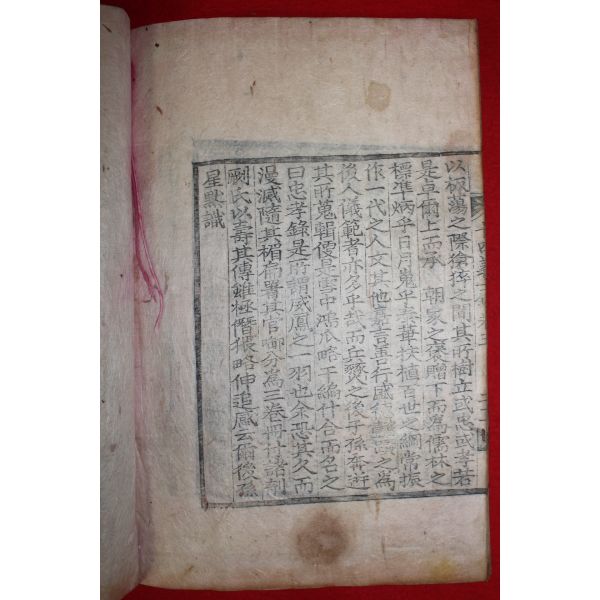 以板蕩之際倉猝之間其所樹立或忠或孝若
是卓爾上而承 朝家之褒贈下而爲儒林之
標準炳乎日月嵬乎泰華扶植百世之綱常振
作一代之人文其他嘉言善行之爲
後人儀範者亦多乎哉而兵燹之後子孫奔迸
其所蒐輯便是雪中鴻爪略干編什合而名之
曰忠孝錄是所謂威鳳之一羽也余恐其久而
漫滅隨其褙偏署其官啣分爲三卷冊付諸剞
劂氏以壽其傳雖極僭猥略伸追感云爾後孫
星默識